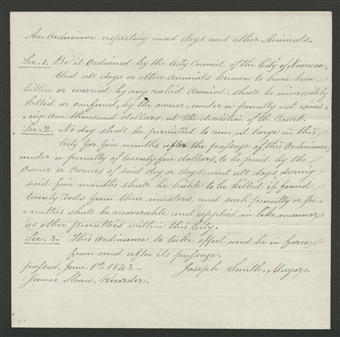 An Ordinance respecting mad dogs and other Animals.
Sec. 1. Be it Ordained by the City Council of the City of Nauvoo,
that all dogs or other animals known to have been
bitten or worried by any rabid animal, shall be immediately
killed or confined, by the owner, under a penalty not exceed-
ing one thousand dollars, at the discretion of the Court.
Sec. 2. No dog shall be permitted to run at large in this
City for five months after the passage of this Ordinance,
under a penalty of twenty five dollars, to be paid by the
owner or owners of said dog or dogs; and all dogs during
said five months shall be liable to be killed if found
twenty rods from their masters, and such penalty or pe-
nalties shall be recoverable and applied in like manner
as other penalties within this City.
Sec. 3. This Ordinance to take effect and be in force
from and after its passage.
passed, June 1st 1843.— Joseph Smith, Mayor.
James Sloan, Recorder.